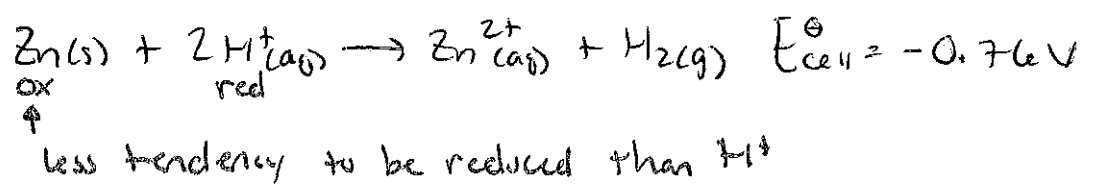 Zn(s) + 2H⁺(aq) → Zn²⁺(aq) + H₂(g) E⊖cell = -0.76V
ox red
↑
less tendency to be reduced than H⁺